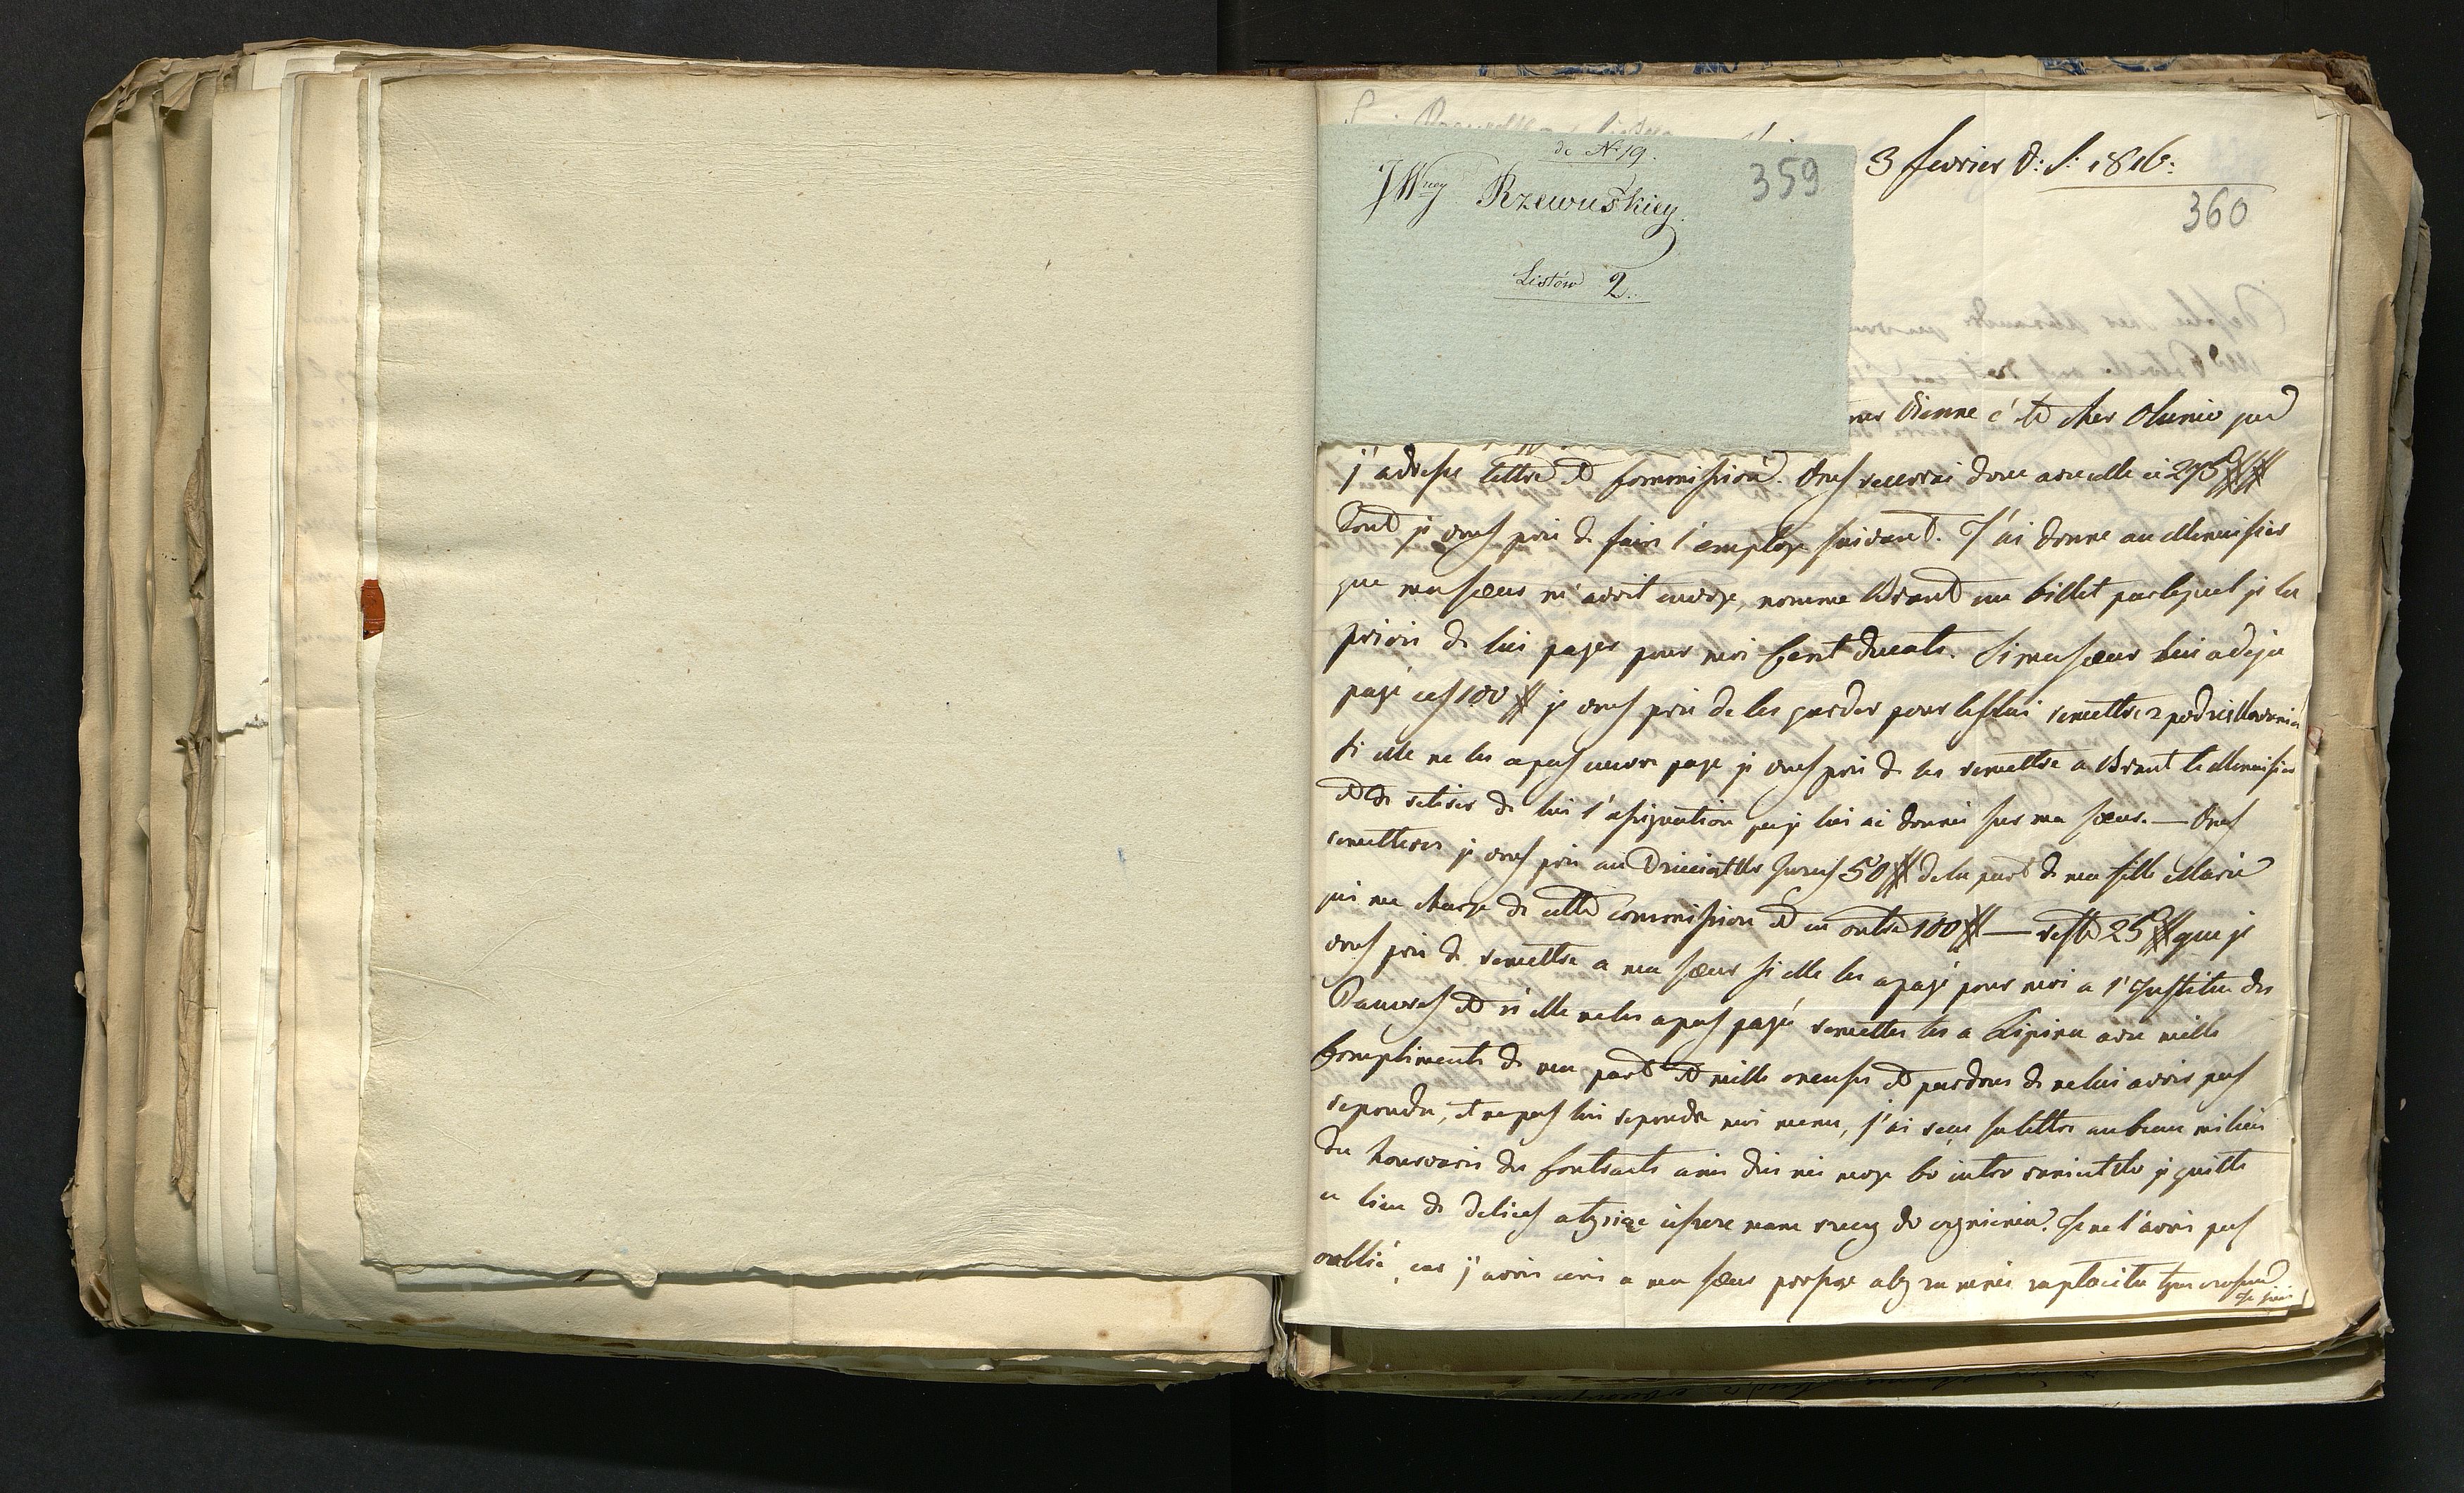 de N° 19.
JWney Rzewuskiey.
359
Listów 2.
3 fevrier V: S: 1816:
360
Vienne c'te cher Olunio que
j'adresse lettre et Commission. Vous recevrai donc avec elle ci 275 ##
dont je vous prie de faire l'employe suivant. J'ai donné au Menuisier
que ma sœur m'avoit envoye, nomme un billet par lequel je la
priois de lui payer pour moi Cent ducats. Si ma sœur lui a deja
payé ces 100 # je vous prie de les garder pour les lui remettre
Si elle ne les a pas encore paye je vous prie de les remettre a le Menuisier
et de retirer de lui l'assignation que je lui ai donnée sur ma sœur. — Vous
remetterez je vous prie au 50 # de la part de ma fille Marie
qui me charge de cette commission et en outre 100 # — reste 25 # que je
vous prie de remettre a ma sœur si elle les a payé pour moi a l'Institu des
Pauvres et si elle ne les a pas payé remettez les a Lipinu avec mille
Compliments de ma part et mille excuses et pardons de ne lui avoir pas
repondu, et ne pas lui repondre moi meme, j'ai reçu sa lettre au beau milieu
du hourvaris des Contracts a nie moge bo je quitte
ce lieu de delices rzeczy do czynienia. Je ne l'avois pas
oublié, car j'avois ecris a ma sœur aby za mnie zaplacila